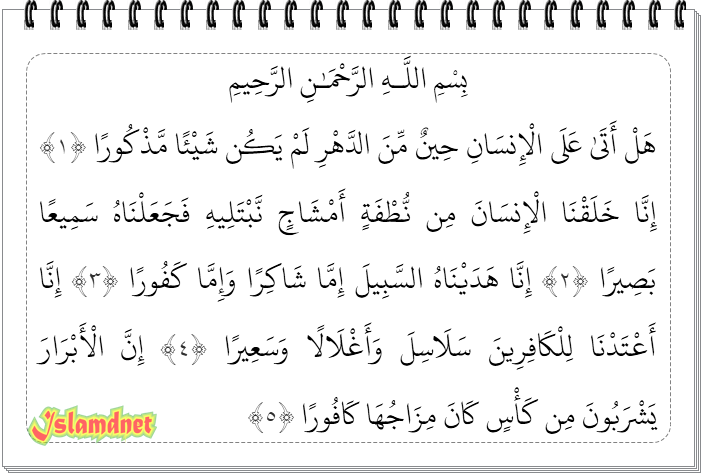 بِسْمِ اللَّـهِ الرَّحْمَـٰنِ الرَّحِيمِ
هَلْ أَتَىٰ عَلَى الْإِنسَانِ حِينٌ مِّنَ الدَّهْرِ لَمْ يَكُن شَيْئًا مَّذْكُورًا ﴿١﴾
إِنَّا خَلَقْنَا الْإِنسَانَ مِن نُّطْفَةٍ أَمْشَاجٍ نَّبْتَلِيهِ فَجَعَلْنَاهُ سَمِيعًا
بَصِيرًا ﴿٢﴾ إِنَّا هَدَيْنَاهُ السَّبِيلَ إِمَّا شَاكِرًا وَإِمَّا كَفُورًا ﴿٣﴾ إِنَّا
أَعْتَدْنَا لِلْكَافِرِينَ سَلَاسِلَ وَأَغْلَالًا وَسَعِيرًا ﴿٤﴾ إِنَّ الْأَبْرَارَ
يَشْرَبُونَ مِن كَأْسٍ كَانَ مِزَاجُهَا كَافُورًا ﴿٥﴾
Islamdnet